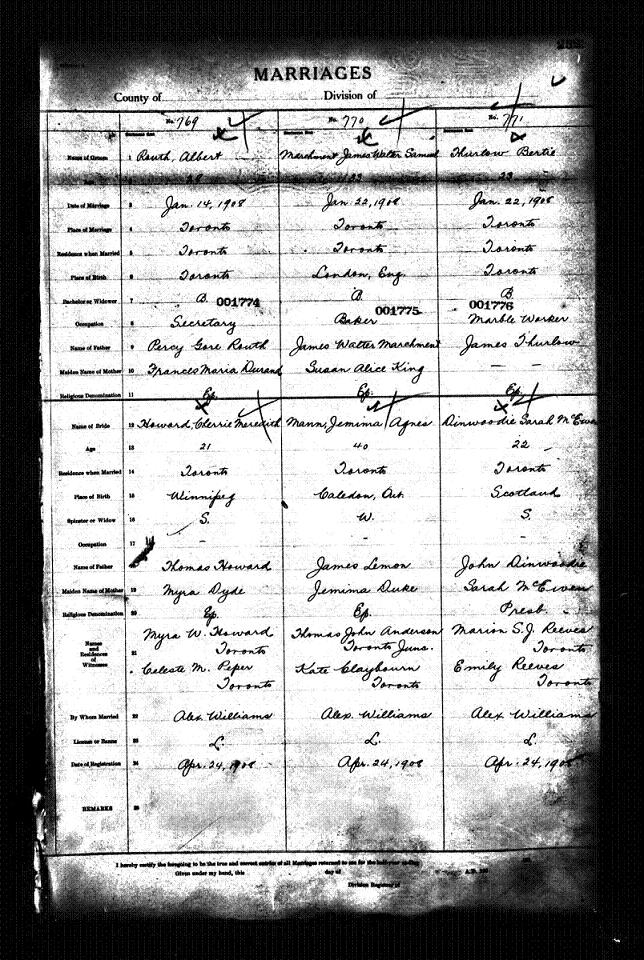 MARRIAGES
County of Division of
No. 769 No. 770 No. 771
Name of Groom 1 Routh, Albert Marchment James Walter Samuel Thurlow Bertie
28 23
Date of Marriage 3 Jan. 14, 1908 Jan. 22, 1908 Jan. 22, 1908
Place of Marriage 4 Toronto Toronto Toronto
Residence when Married 5 Toronto Toronto Toronto
Place of Birth 6 Toronto London, Eng. Toronto
Bachelor or Widower 7 B. B. B.
001774 001775 001776
Occupation 8 Secretary Baker Marble Worker
Name of Father 9 Percy Gore Routh James Walter Marchment James Thurlow
Maiden Name of Mother 10 Frances Maria Durand Susan Alice King — —
Religious Denomination 11 Ep. Ep. Ep.
Name of Bride 12 Howard, Cherrie Meredith Mann, Jemima Agnes Dinwoodie Sarah McEwen
Age 13 21 40 22
Residence when Married 14 Toronto Toronto Toronto
Place of Birth 15 Winnipeg Caledon, Ont. Scotland
Spinster or Widow 16 S. W. S.
Occupation 17 - -
Name of Father Thomas Howard James Lemon John Dinwoodie
Maiden Name of Mother 19 Myra Dyde Jemima Duke Sarah McEwen
Religious Denomination 20 Ep. Ep. Presb.
Names and Residences of Witnesses 21 Myra W. Howard Thomas John Anderson Marion S.J. Reeves
Toronto Toronto Junc. Toronto
Celeste M. Peper Kate Claybourn Emily Reeves
Toronto Toronto Toronto
By Whom Married 22 Alex. Williams Alex. Williams Alex. Williams
License or Banns 23 L. L. L.
Date of Registration 24 Apr. 24, 1908 Apr. 24, 1908 Apr. 24, 1908
REMARKS 25
I hereby certify the foregoing to be the true and correct entries of all Marriages returned to me for the half-year ending
Given under my hand, this day of A.D. 190
Division Registrar of